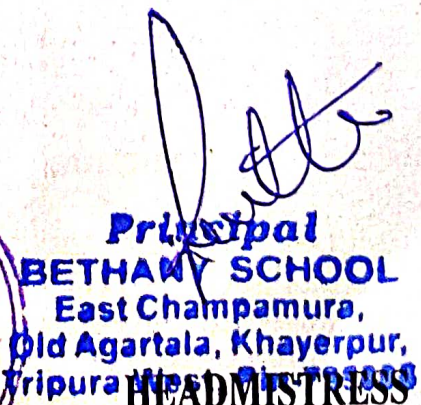 Principal
BETHANY SCHOOL
East Champamura,
Old Agartala, Khayerpur,
Tripura West,
HEADMISTRESS